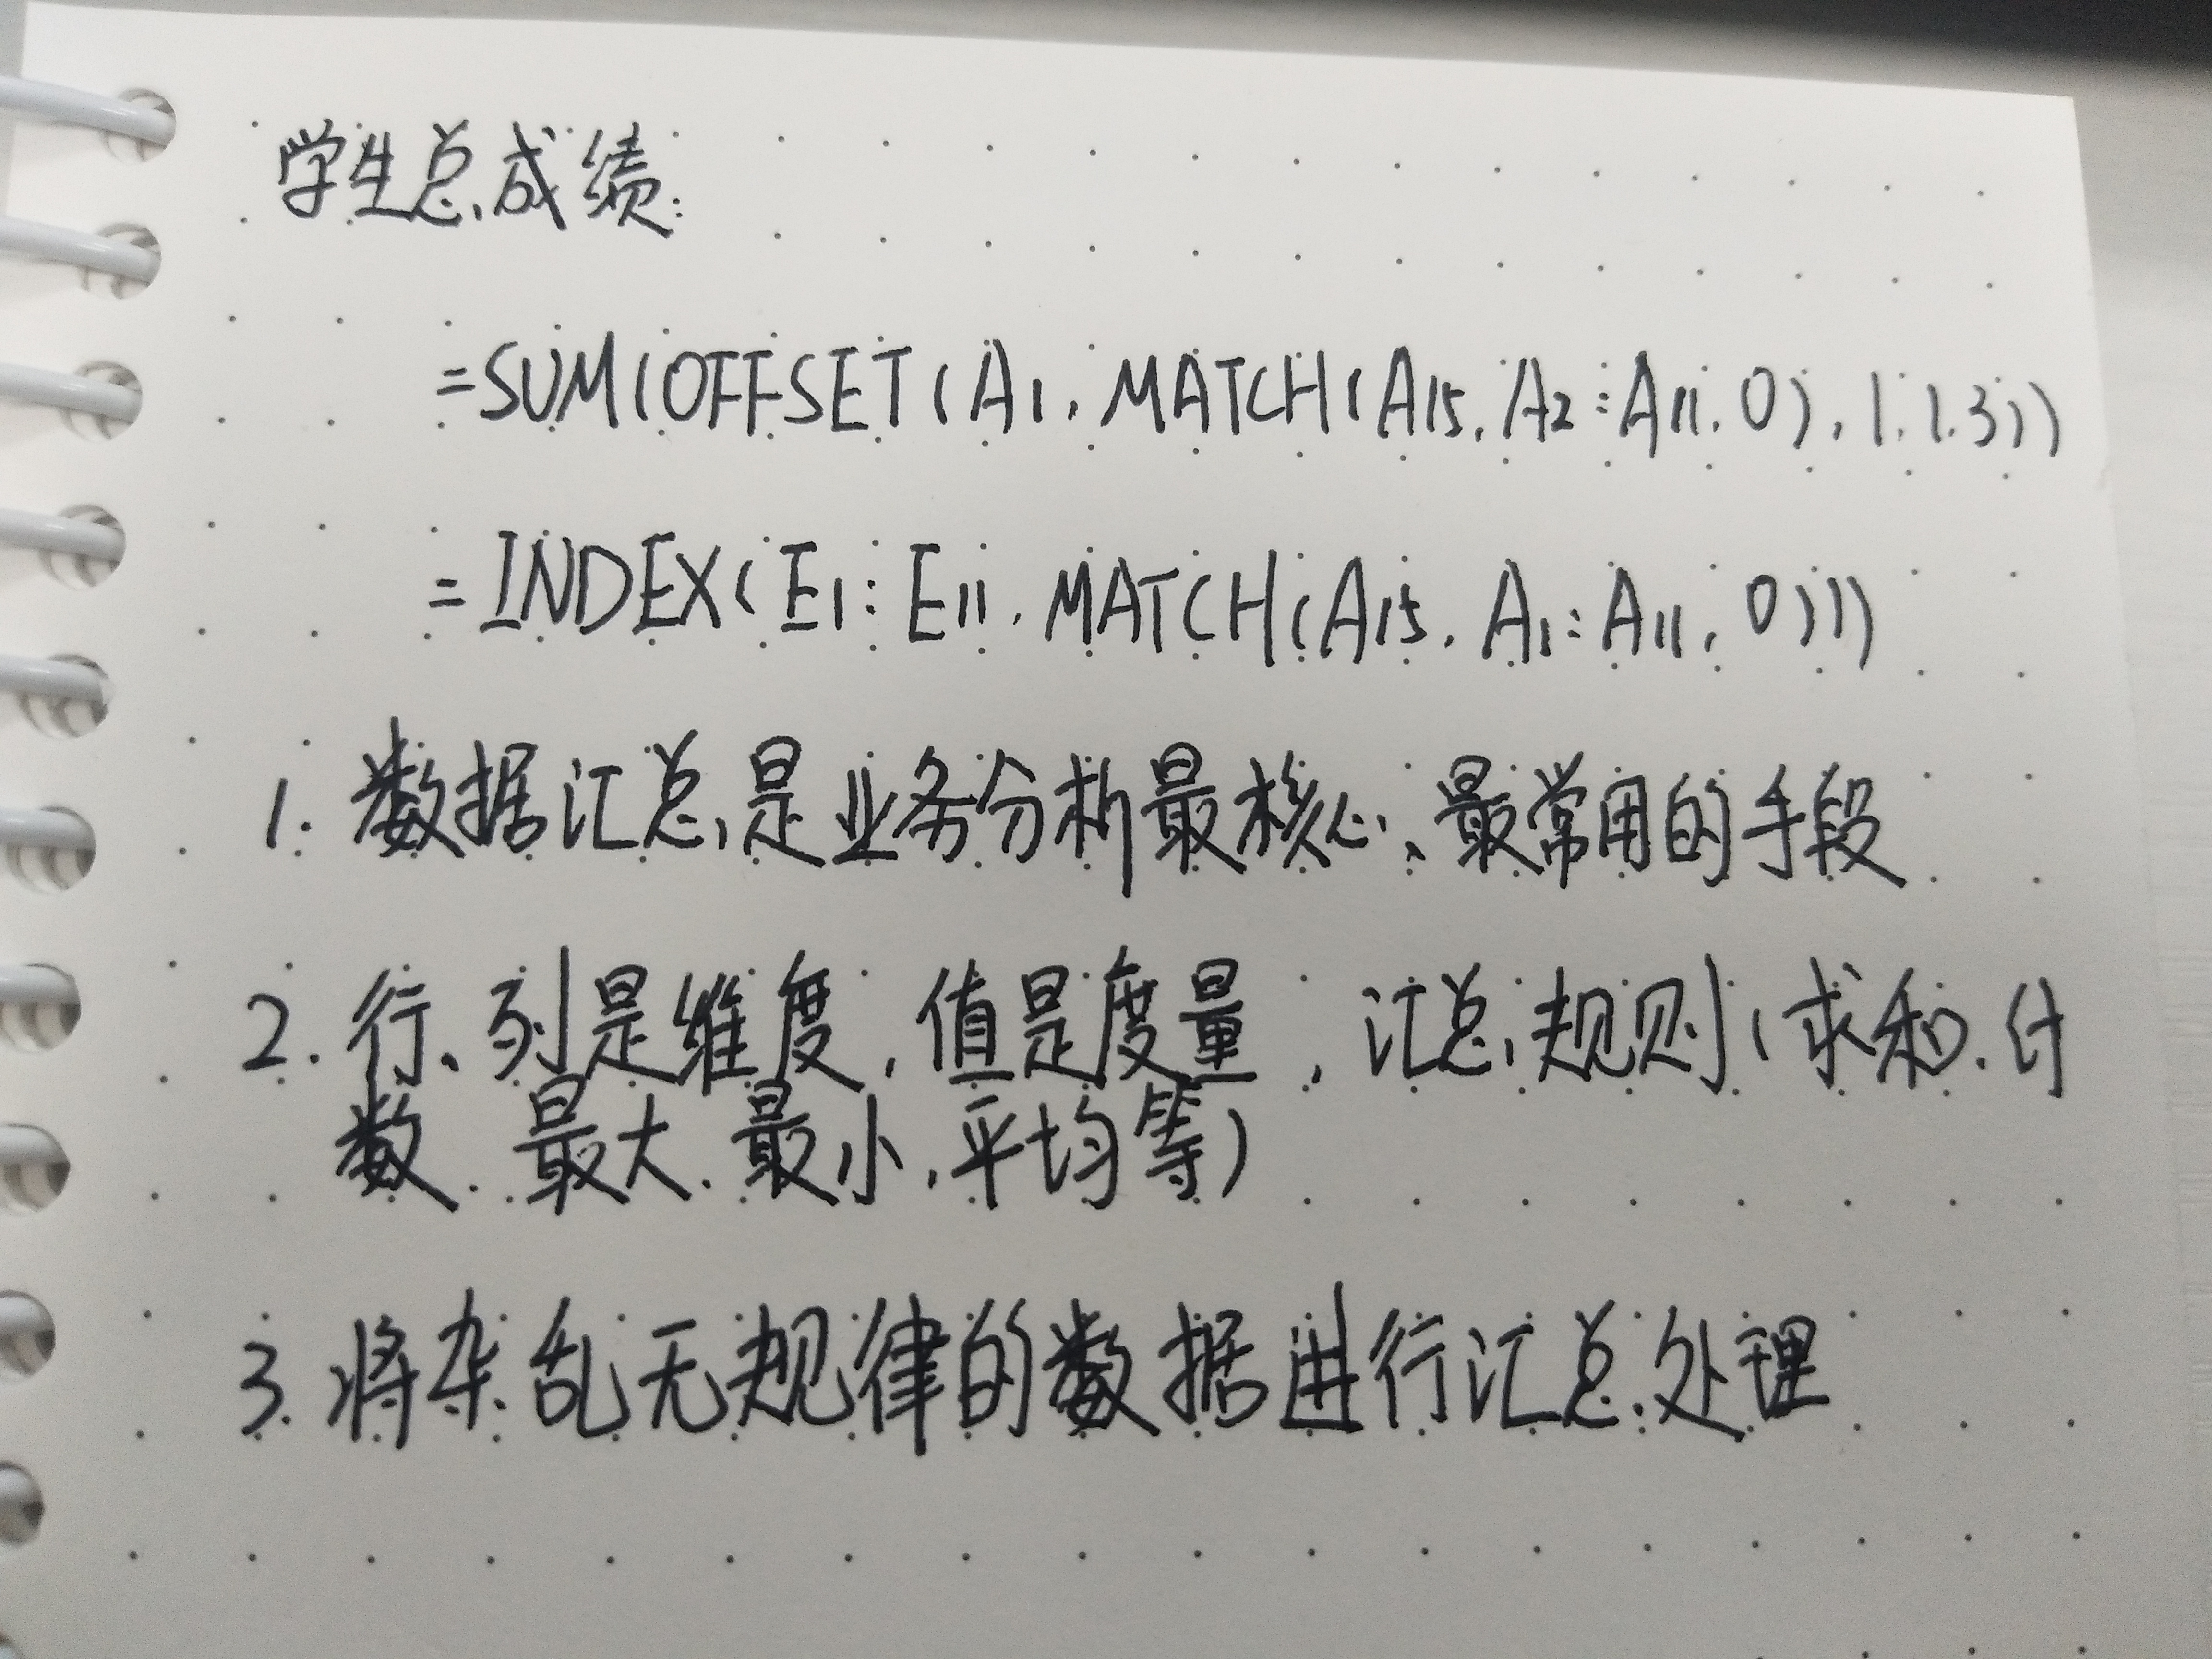 学生总成绩:
=SUM(OFFSET(A1,MATCH(A15,A2:A11,0),1,1,3))
=INDEX(E1:E11,MATCH(A15,A1:A11,0)))
1.数据汇总是业务分析最核心、最常用的手段
2.行、列是维度,值是度量,汇总规则(求和、计
数、最大、最小、平均等)
3.将杂乱无规律的数据进行汇总处理